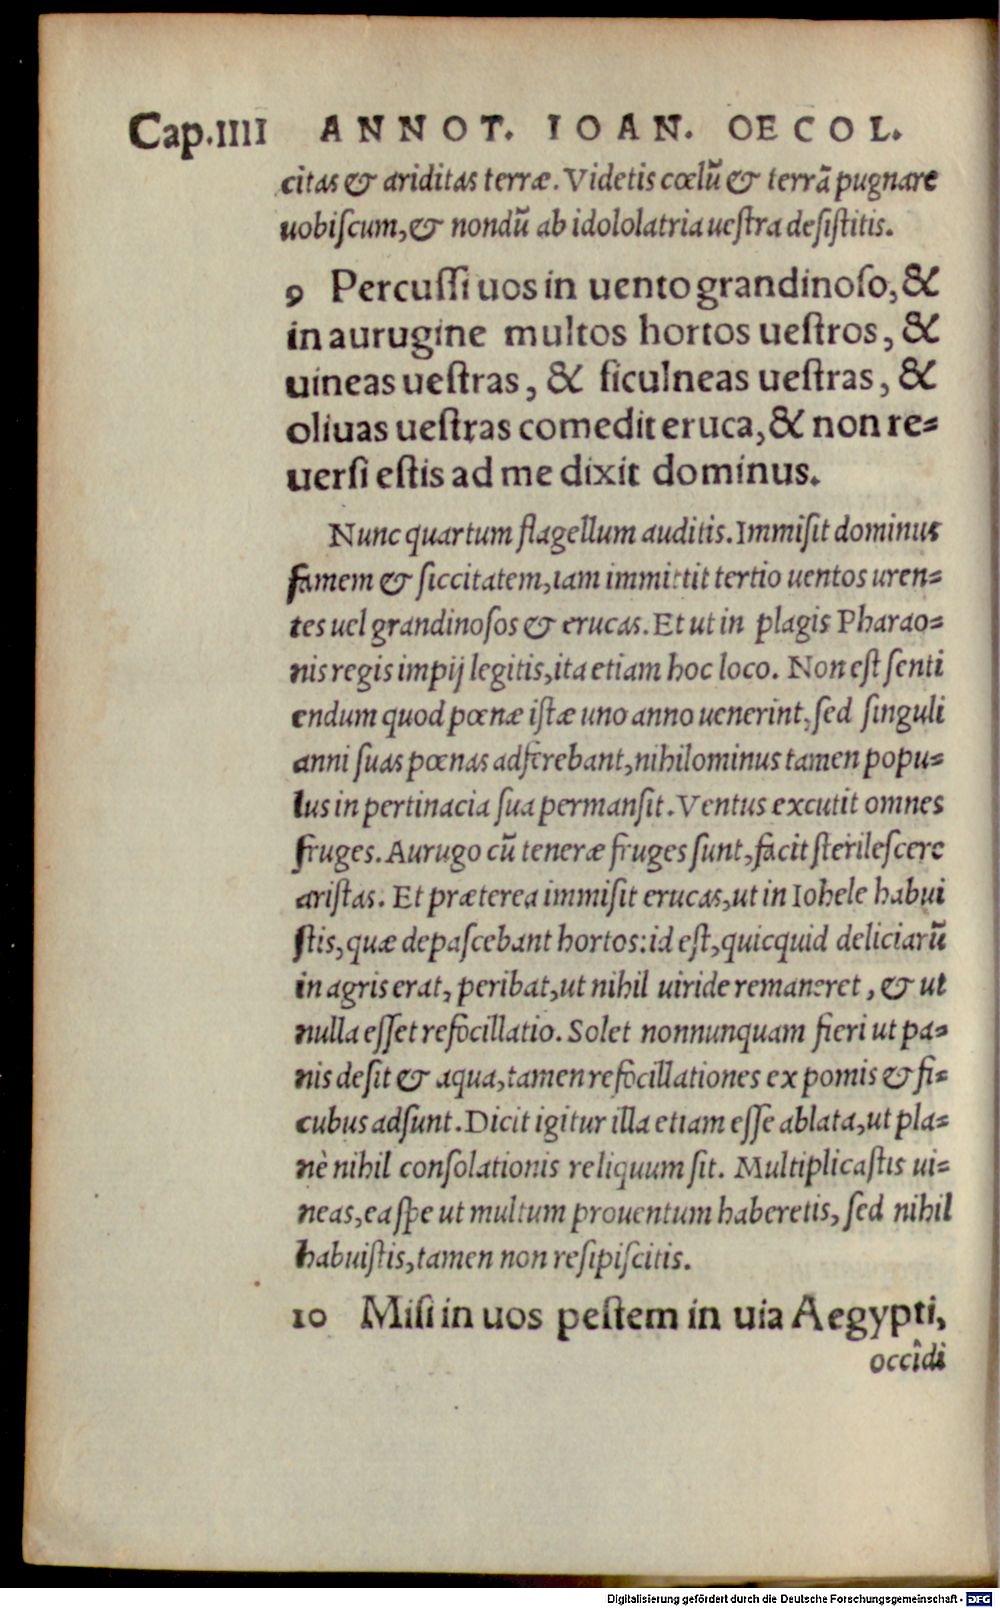 Cap.IIII ANNOT. IOAN. OECOL.
citas & ariditas terræ. Videtis cœlū & terrā pugnare
uobiſcum, & nondū ab idololatria ueſtra deſiſtitis.
9 Percuſſi uos in uento grandinoſo, &
in aurugine multos hortos ueſtros, &
uineas ueſtras, & ficulneas ueſtras, &
oliuas ueſtras comedit eruca, & non re=
uerſi eſtis ad me dixit dominus.
Nunc quartum flagellum auditis. Immiſit dominus
famem & ſiccitatem, iam immittit tertio uentos uren=
tes uel grandinoſos & erucas. Et ut in plagis Pharao=
nis regis impij legitis, ita etiam hoc loco. Non eſt ſenti
endum quod pœnæ iſtæ uno anno uenerint, ſed ſinguli
anni ſuas pœnas adferebant, nihilominus tamen popu=
lus in pertinacia ſua permanſit. Ventus excutit omnes
fruges. Aurugo cū teneræ fruges ſunt, facit ſterileſcere
ariſtas. Et præterea immiſit erucas, ut in Iohele habui
ſtis, quæ depaſcebant hortos: id eſt, quicquid deliciarū
in agris erat, peribat, ut nihil uiride remaneret, & ut
nulla eſſet refocillatio. Solet nonnunquam fieri ut pa=
nis deſit & aqua, tamen refocillationes ex pomis & fi=
cubus adſunt. Dicit igitur illa etiam eſſe ablata, ut pla=
nè nihil conſolationis reliquum ſit. Multiplicaſtis ui=
neas, ea ſpe ut multum prouentum haberetis, ſed nihil
habuiſtis, tamen non reſipiſcitis.
10 Miſi in uos peſtem in uia Aegypti,
occîdi
Digitalisierung gefördert durch die Deutsche Forschungsgemeinschaft - DFG